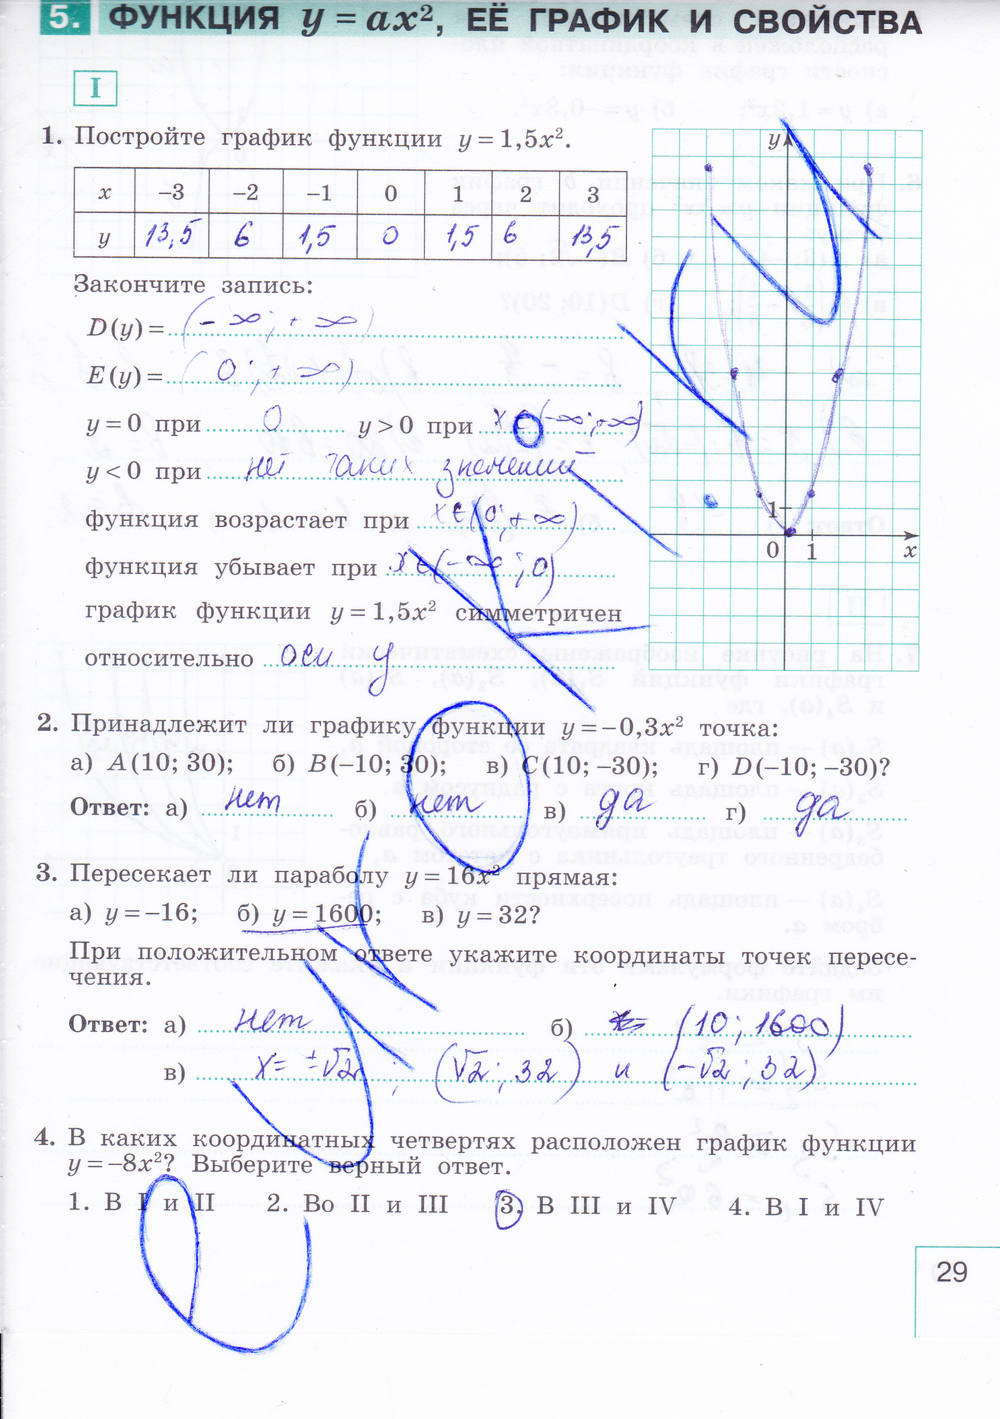 5. ФУНКЦИЯ y = ax², ЕЁ ГРАФИК И СВОЙСТВА
I
1. Постройте график функции y = 1,5x².
x –3 –2 –1 0 1 2 3
y 13,5 6 1,5 0 1,5 6 13,5
Закончите запись:
D(y) = (-∞; +∞)
E(y) = (0; +∞)
y = 0 при 0 y > 0 при x∈(-∞; +∞)
y < 0 при нет таких значений
функция возрастает при x∈(0; +∞)
функция убывает при x∈(-∞; 0)
график функции y = 1,5x² симметричен
относительно оси y
y
1
0 1 x
2. Принадлежит ли графику функции y = –0,3x² точка:
а) A(10; 30); б) B(–10; 30); в) C(10; –30); г) D(–10; –30)?
Ответ: а) нет б) нет в) да г) да
3. Пересекает ли параболу y = 16x² прямая:
а) y = –16; б) y = 1600; в) y = 32?
При положительном ответе укажите координаты точек пересе-
чения.
Ответ: а) нет б) (10; 1600)
в) x = ±√2; (√2; 32) и (-√2; 32)
4. В каких координатных четвертях расположен график функции
y = –8x²? Выберите верный ответ.
1. В I и II 2. Во II и III 3. В III и IV 4. В I и IV
29